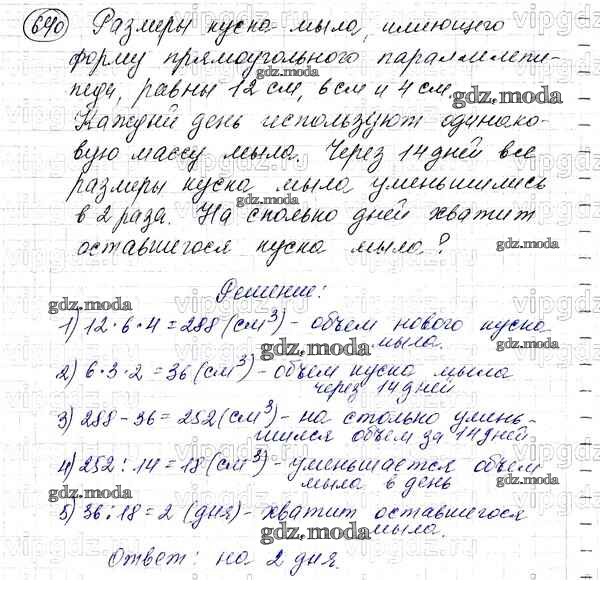 640 Размеры куска мыла, имеющего
форму прямоугольного параллелепи-
педа, равны 12 см, 6 см и 4 см.
Каждый день используют одинако-
вую массу мыла. Через 14 дней все
размеры куска мыла уменьшились
в 2 раза. На сколько дней хватит
оставшегося куска мыла?
Решение:
1) 12·6·4=288 (см³) - объем нового куска
мыла.
2) 6·3·2=36 (см³) - объем куска мыла
через 14 дней
3) 288-36=252 (см³) - на столько умень-
шился объем за 14 дней
4) 252:14=18 (см³) - уменьшается объем
мыла в день
5) 36:18=2 (дня) - хватит оставшегося
мыла.
Ответ: на 2 дня.
gdz.moda
gdz.moda
gdz.moda
gdz.moda
gdz.moda
gdz.moda
gdz.moda
gdz.moda
gdz.moda
gdz.moda
gdz.moda